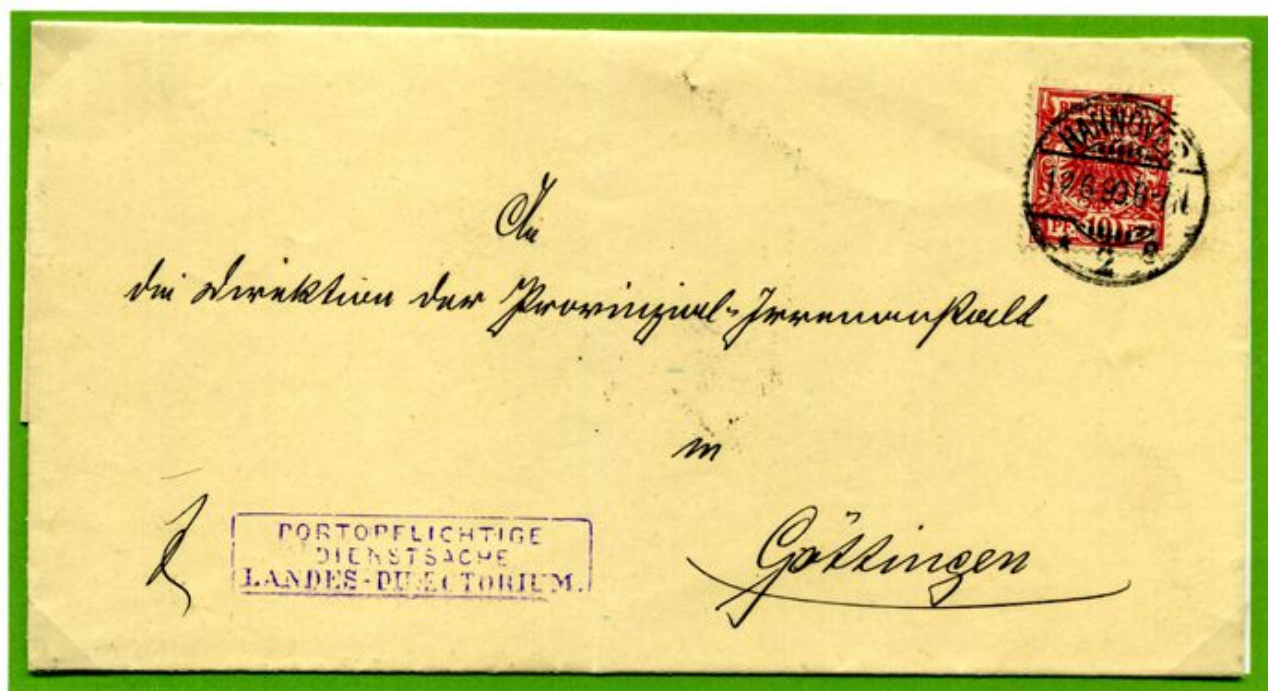 REICHSPOST
PF. 10 PF.
HANNOVER
6-7N
* 2 g
An
die Direktion der Provinzial-Irrenanstalt
in
Göttingen
PORTOPFLICHTIGE
DIENSTSACHE
LANDES-DIRECTORIUM.